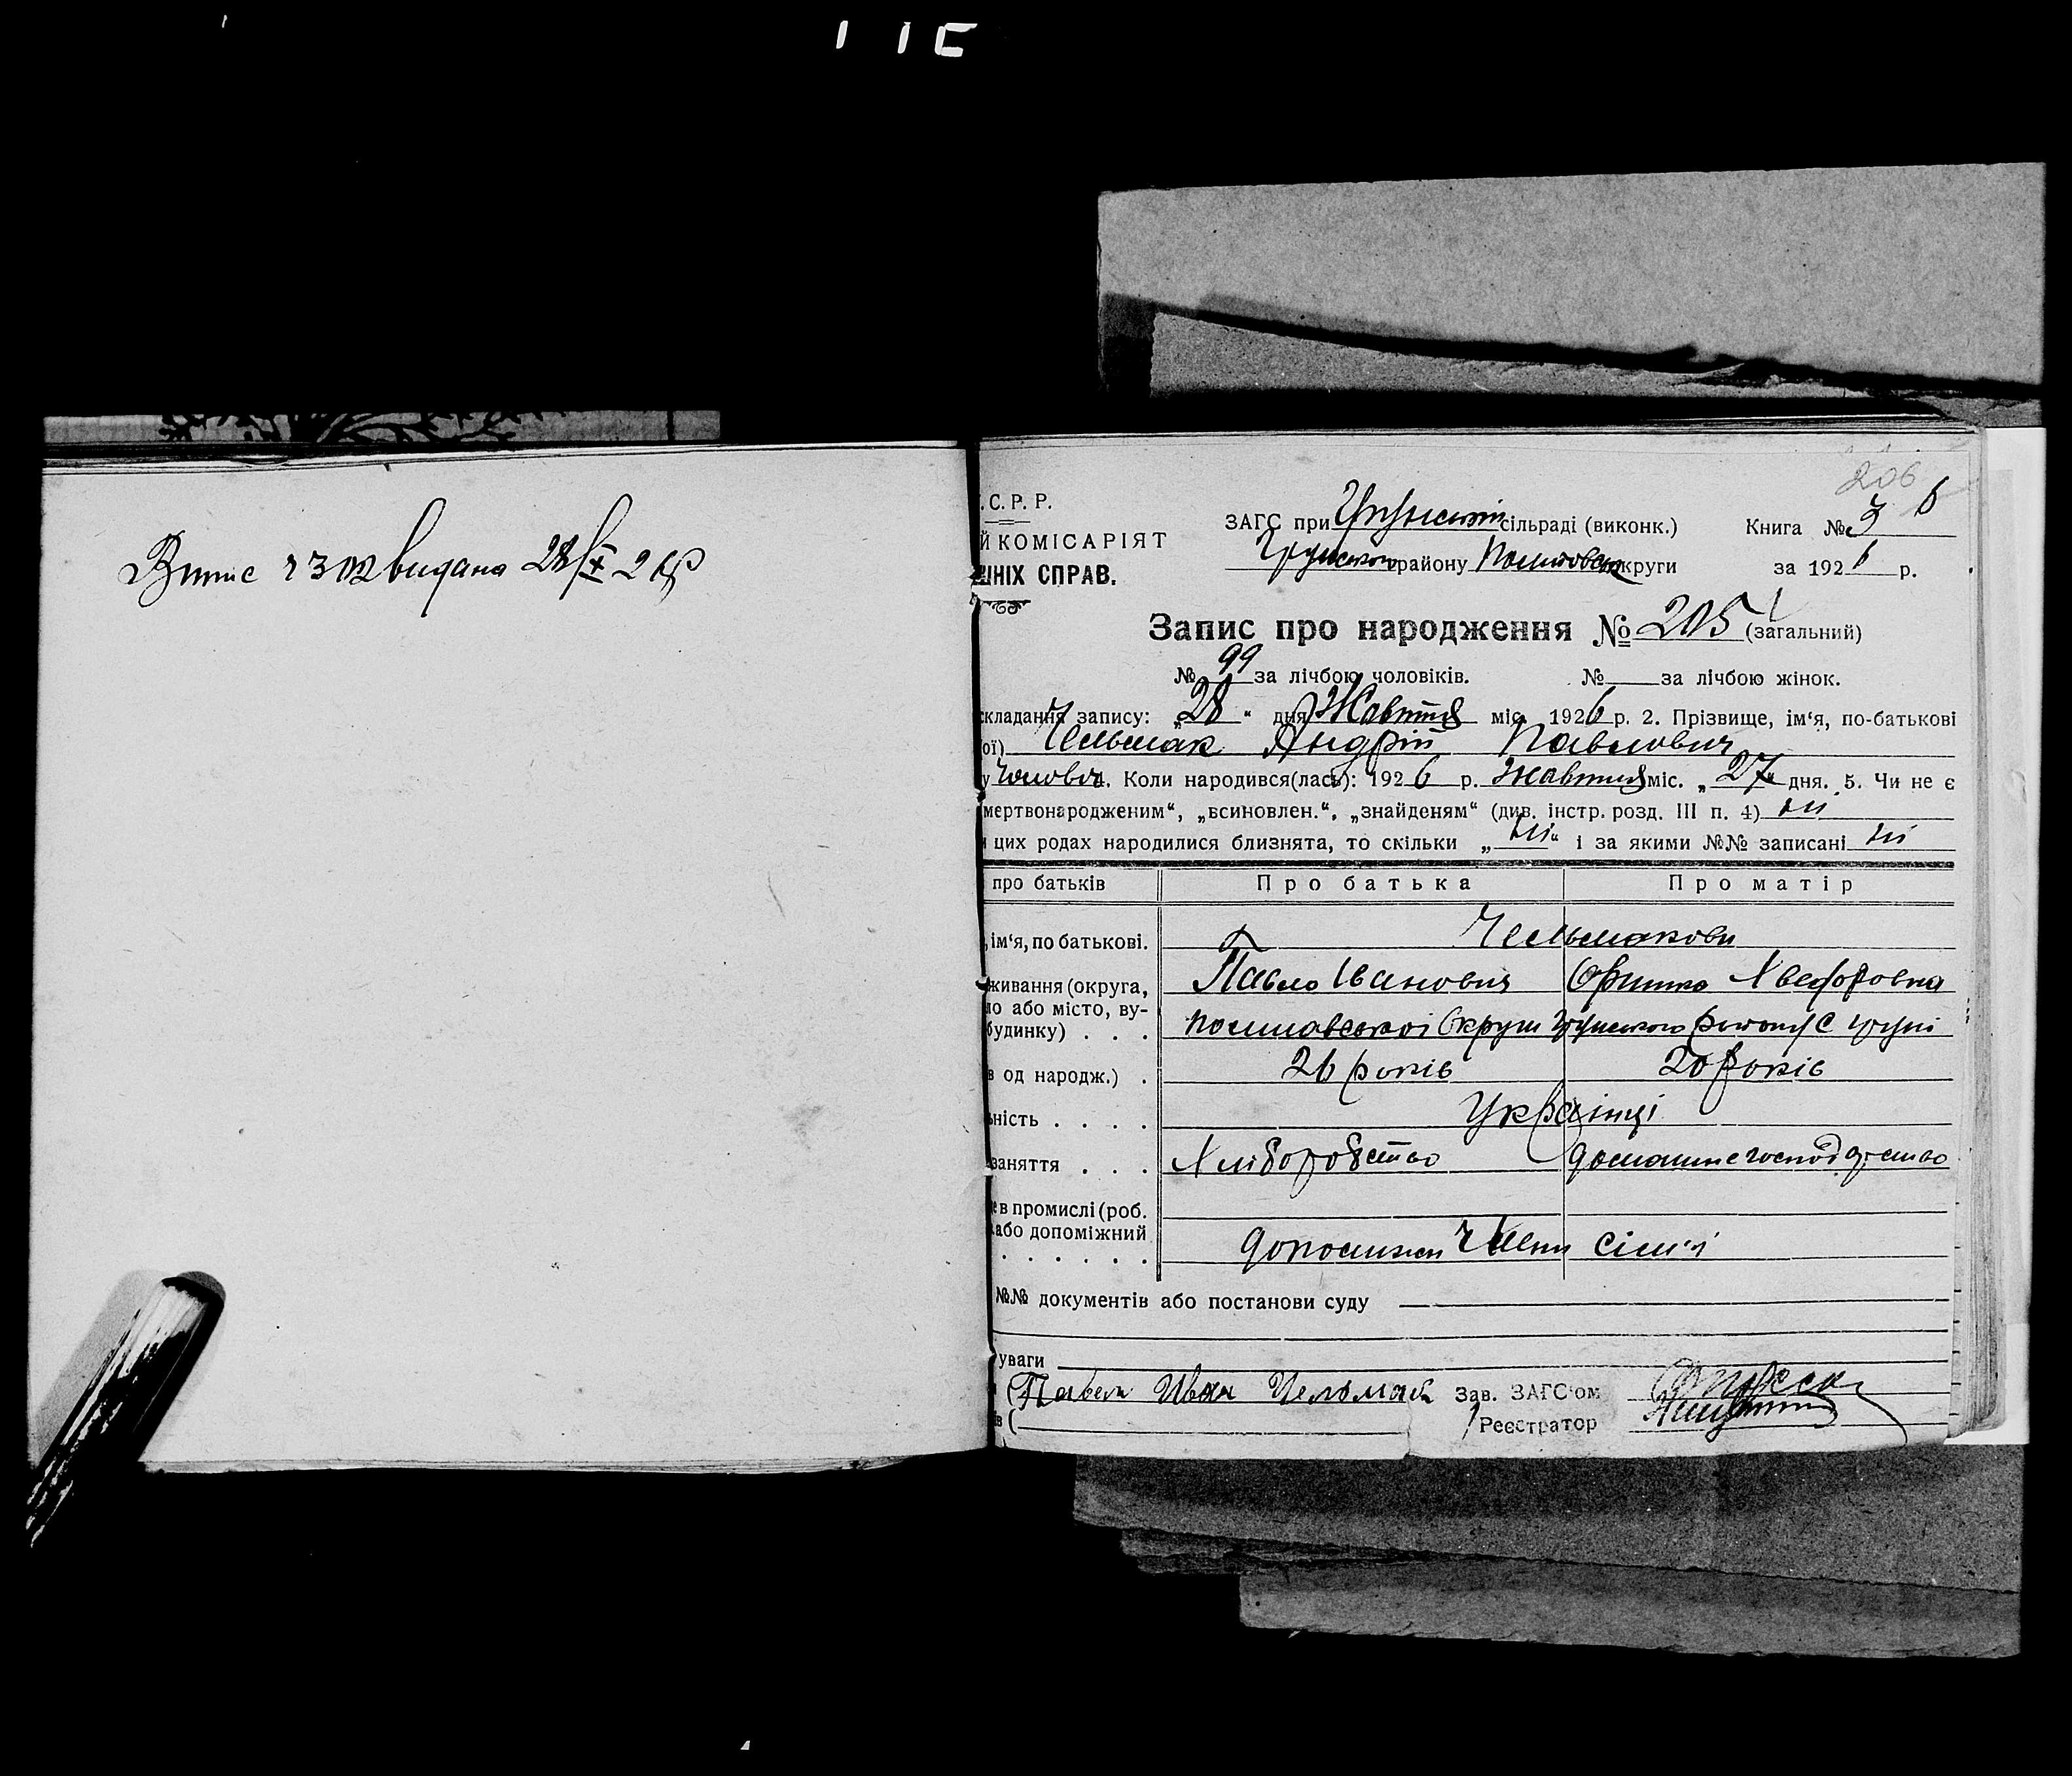 Випис 2302 видана 28/X 26р
206
.С.Р.Р.
Й КОМІСАРІЯТ
ШНІХ СПРАВ.
ЗАГС при Грунській сільраді (виконк.)
Книга № 3 б
Грунського району Полтавськ округи
за 1926 р.
Запис про народження № 205 (загальний)
№ 99 за лічбою чоловіків. № за лічбою жінок.
складання запису: „28“ дня Жовтня міс. 1926 р. 2. Прізвище, ім‘я, по-батькові
ої) Чельмак Андрій Павлович
у Чоловіч 4. Коли народився(лась): 1926 р. Жовтня міс. „27“ дня. 5. Чи не є
мертвонародженим“, „всиновлен.“, „знайденям“ (див. інстр. розд. III п. 4) ні
и цих родах народилися близнята, то скільки „ні“ і за якими №№ записані ні
про батьків
Про батька
Про матір
, ім‘я, по батькові.
Чельмакови
Павло Іванович
Оришка Хведоровна
живання (округа,
но або місто, ву-
будинку) . . .
Полтавської Округи Грунського району С Груні
в од народж.) .
26 років
20 років
ність . . . .
Українці
заняття . . .
Хліборобство
домашнє господарство
е в промислі (роб.
або допоміжний
. . . . . .
допоміжн Члени сім'ї
№№ документів або постанови суду
уваги
( Павел Иван Чельмак
Зав. ЗАГС‘ом
в (
Реєстратор